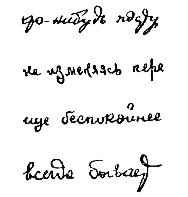 го-нибудь поеду
не изменяясь пере
ище беспокойнее
всегда бывает